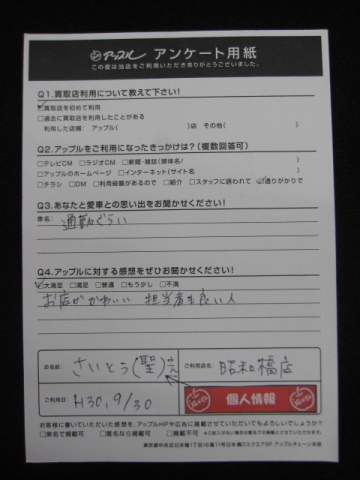 アップル アンケート用紙
この度は当店をご利用いただきありがとうございました。
Q1.買取店利用について教えて下さい!
☑買取店を初めて利用
□過去に買取店を利用したことがある
利用した店舗: アップル( )店 その他( )
Q2.アップルをご利用になったきっかけは?(複数回答可)
□テレビCM □ラジオCM □新聞・雑誌(媒体名/ )
□アップルのホームページ □インターネット(サイト名 )
□チラシ □DM □利用経験があるので □紹介 □スタッフに誘われて ☑通りがかりで
Q3.あなたと愛車との思い出をお聞かせください!
車名:
通勤ぐらい
Q4.アップルに対する感想をぜひお聞かせください!
☑大満足 □満足 □普通 □もう少し □不満
お店がかわいい 担当者も良い人
お名前: さいとう(聖) ご利用店名: 昭和橋店
ご利用日: H30, 9/30 個人情報
お客様に書いていただいた感想を、アップルHPや広告に掲載させていただいてもよろしいでしょうか?
□実名で掲載可 □匿名なら掲載可 □掲載不可